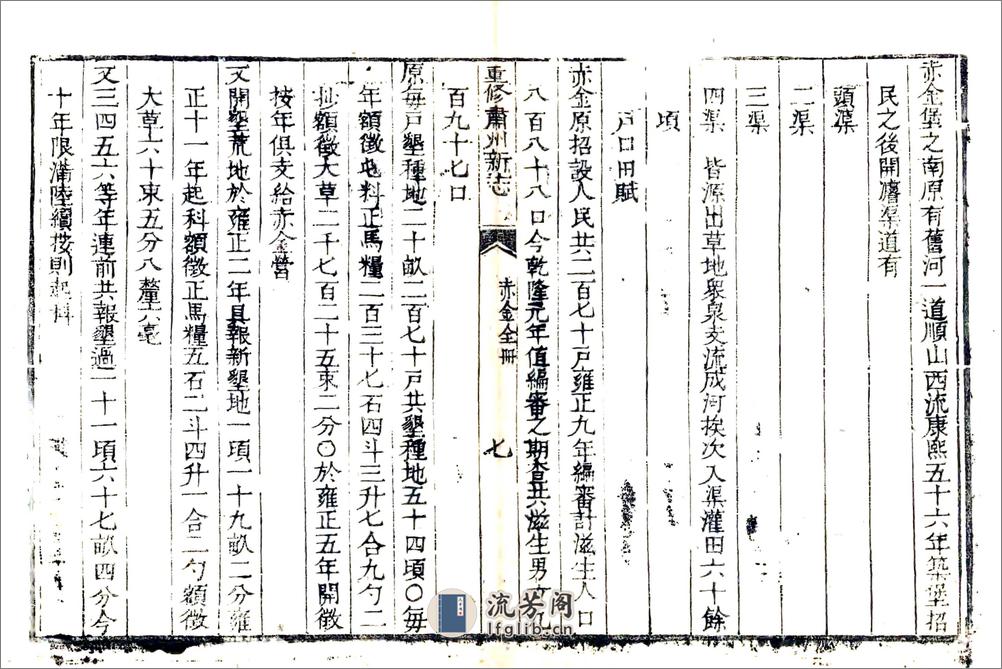 赤金堡之南原有舊河一道順山西流康熙五十六年築堡招
民之後開濬渠道有
頭渠
二渠
三渠
四渠　皆源出草地衆泉支流成河挨次入渠灌田六十餘
項
戶口田賦
赤金原招設人民共二百七十戶雍正九年編審計滋生人口
八百八十八口今乾隆元年值編審之期查共滋生男女九
百九十七口
重修肅州新志
赤金全冊
七
原每戶墾種地二十畝二百七十戶共墾種地五十四頃〇每
年額徵屯料正馬糧二百三十七石四斗三升七合九勺二
抄額徵大草二千七百二十五束二分〇於雍正五年開徵
按年俱支給赤金營
又開墾荒地於雍正二年具報新墾地一頃一十九畝二分雍
正十一年起科額徵正馬糧五石二斗四升一合二勺額徵
大草六十束五分八釐六毫
又三四五六等年連前共報墾過二十一頃六十七畝四分今
十年限滿陸續按則起科
流芳阁
lfglib.cn